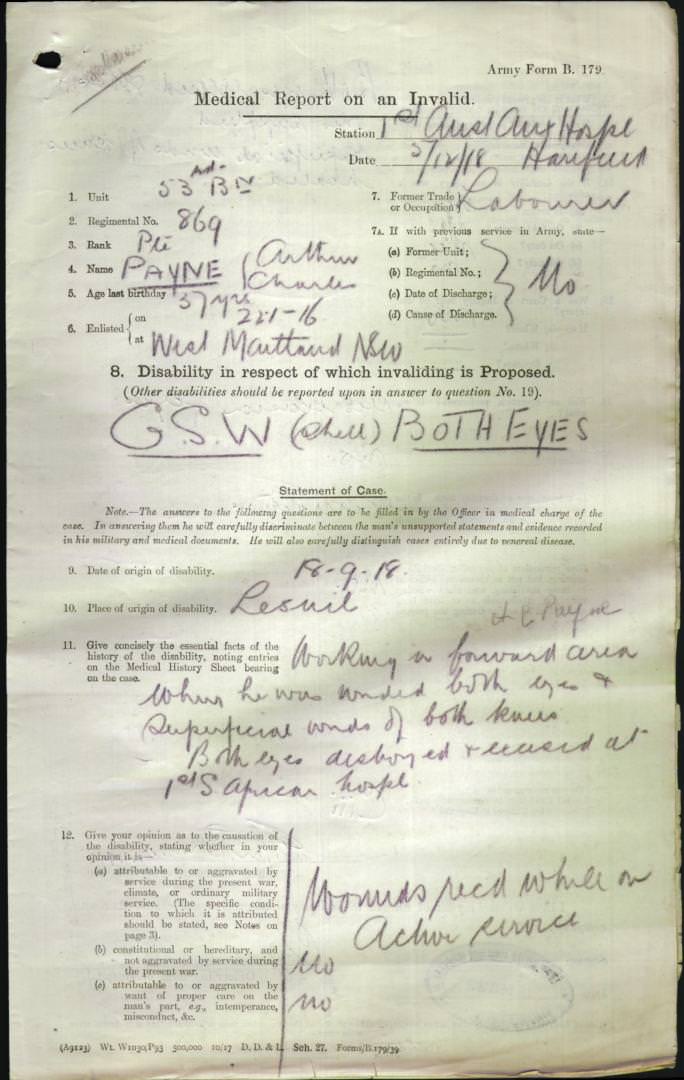 Army Form B. 179.
Medical Report on an Invalid.
Station 1st Aust Aux Hospl
Date 3/12/18 Harefield
1. Unit 53 Bn
2. Regimental No. 869
3. Rank Pte
4. Name PAYNE { Arthur Charles
5. Age last birthday 37 yrs
6. Enlisted { on 22-1-16
at West Maitland NSW
7. Former Trade or Occupation } Labourer
7A. If with previous service in Army, state—
(a) Former Unit;
(b) Regimental No.;
(c) Date of Discharge;
(d) Cause of Discharge.
} No
8. Disability in respect of which invaliding is Proposed.
(Other disabilities should be reported upon in answer to question No. 19).
G.S.W (shell) BOTH EYES
Statement of Case.
Note.—The answers to the following questions are to be filled in by the Officer in medical charge of the
case. In answering them he will carefully discriminate between the man's unsupported statements and evidence recorded
in his military and medical documents. He will also carefully distinguish cases entirely due to venereal disease.
9. Date of origin of disability. 18-9-18.
10. Place of origin of disability.
A C Payne
11. Give concisely the essential facts of the
history of the disability, noting entries
on the Medical History Sheet bearing
on the case.
Working in forward area
when he was wnded both eyes &
Superficial wnds of both knees
Both eyes destroyed & excised at
1st S African hospl.
12. Give your opinion as to the causation of
the disability, stating whether in your
opinion it is—
(a) attributable to or aggravated by
service during the present war,
climate, or ordinary military
service. (The specific condi-
tion to which it is attributed
should be stated, see Notes on
page 3).
Wounds recd while on
Active service
(b) constitutional or hereditary, and
not aggravated by service during
the present war.
No
(c) attributable to or aggravated by
want of proper care on the
man's part, e.g., intemperance,
misconduct, &c.
no
(A9123) Wt. W1130/P93 500,000 10/17 D. D. & L. Sch. 27. Forms/B.179/39